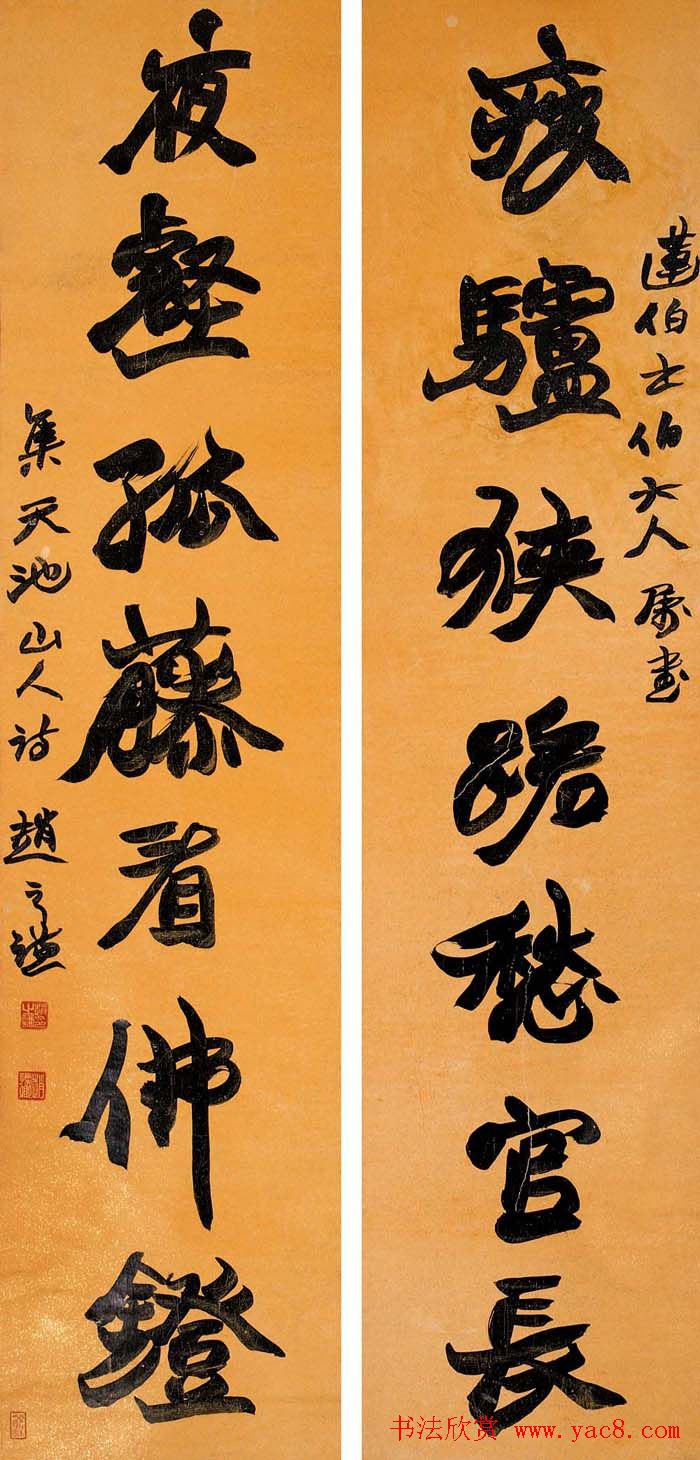 瘦驢狹路愁官長
蓮伯士伯大人屬書
夜壑孤藤看佛鐙
集天池山人詩 趙之謙
书法欣赏 www.yac8.com